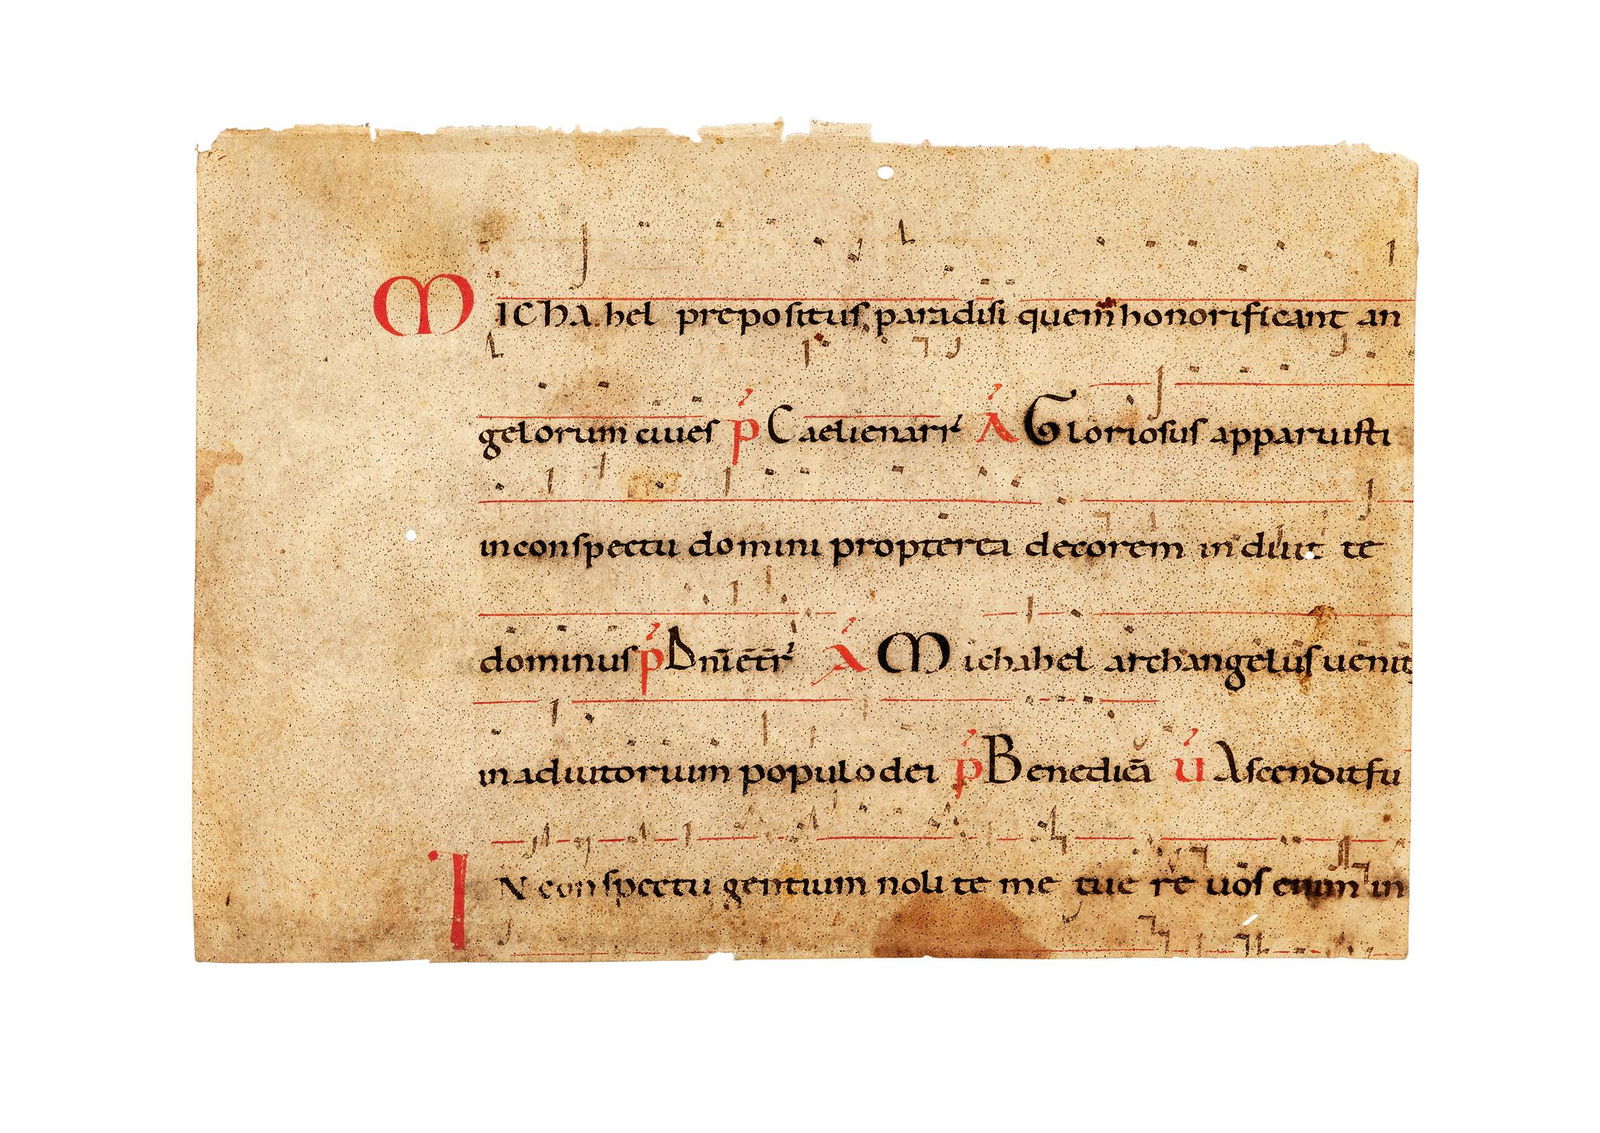 Michahel prepositus paradisi quem honorificant an
gelorum ciues p̄ Caelienarr̄ A Gloriosus apparuisti
inconspectu domini propterea decorem induit te
dominus p̄ Dn̄ietr̄ A Michahel archangelus uenit
inadiutorium populo dei p̄ Benedicā ū Ascendit fu
In conspectu gentium nolite me tuere uos enim in